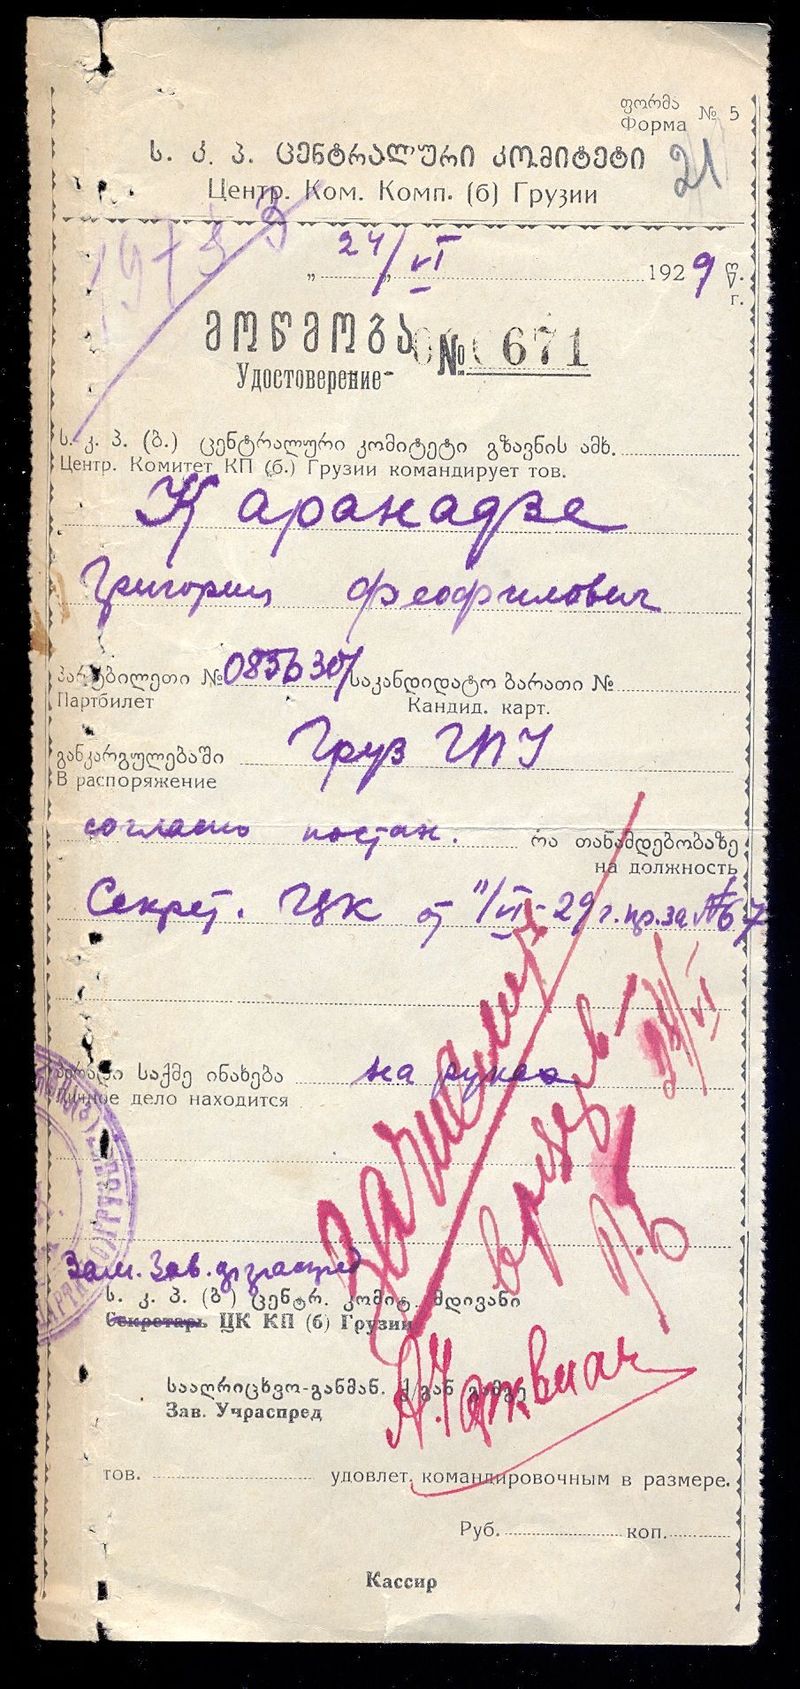 ფორმა № 5
Форма
21
ს. კ. პ. ცენტრალური კომიტეტი
Центр. Ком. Комп. (б) Грузии
„24/VI“ 1929 წ.
г.
მოწმობა № 671
Удостоверение
ს. კ. პ. (ბ.) ცენტრალური კომიტეტი გზავნის ამხ.
Центр. Комитет КП (б.) Грузии командирует тов.
Каранадзе
Григорий Феофилович
პარტბილეთი № საკანდიდატო ბარათი №
Партбилет Кандид. карт.
განკარგულებაში Груз ГПУ
В распоряжение
согласно постан. რა თანამდებობაზე
на должность
Секрет. ЦК от 11/VI-29 г. пр. за № 67
პირადი საქმე ინახება на руках
Личное дело находится
Зачислить
в резерв
Зам. Зав.
ს. კ. პ. (ბ) ცენტრ. კომიტ. მდივანი
Секретарь ЦК КП (б) Грузии
სააღრიცხვო-განმან. გამგე
Зав. Учраспред
тов. удовлет. командировочным в размере.
Руб. коп.
Кассир